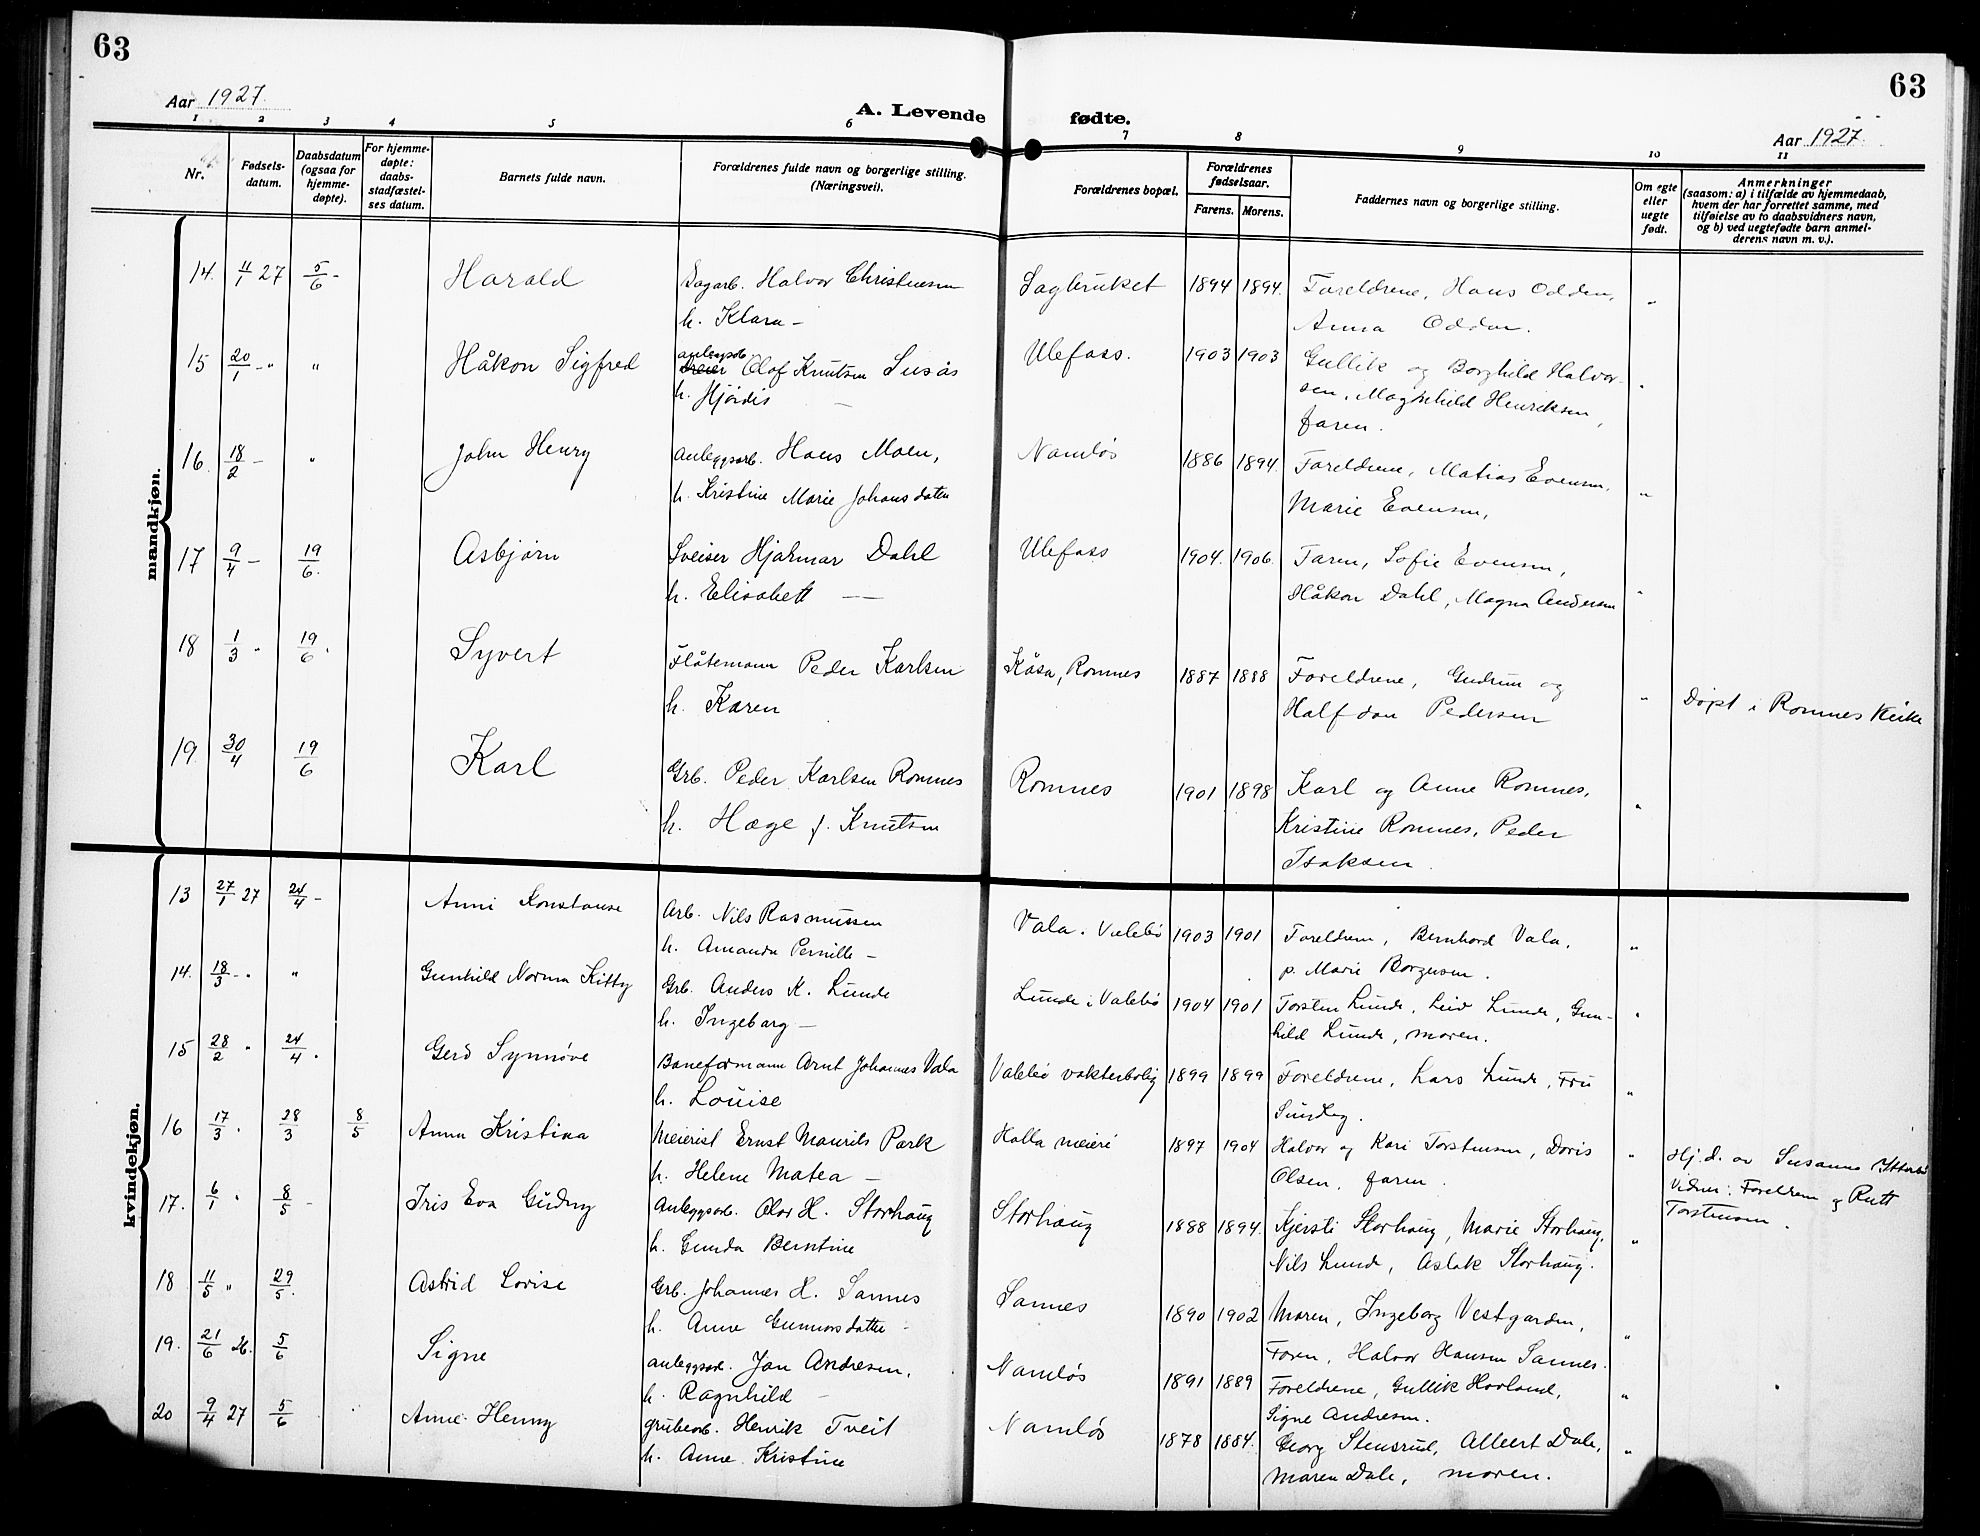 63
63
Aar 1927.
A. Levende fødte.
Aar 1927.
1 2 3 4 5 6 7 8 9 10 11
Nr.
Fødsels-
datum.
Daabsdatum
(ogsaa for
hjemme-
døpte).
For hjemme-
døpte:
daabs-
stadfæstel-
ses datum.
Barnets fulde navn.
Forældrenes fulde navn og borgerlige stilling.
(Næringsvei).
Forældrenes bopæl.
Forældrenes
fødselsaar.
Farens. Morens.
Faddernes navn og borgerlige stilling.
Om egte
eller
uegte
født.
Anmerkninger
(saasom: a) i tilfælde av hjemmedaab,
hvem der har forrettet samme, med
tilføielse av to daabsvidners navn,
og b) ved uegtefødte barn anmel-
derens navn m. v.).
mandkjøn.
14. 11/1 27 5/6 - Harald Sagarb. Halvor Christensen Sagbruket 1894 1894. Foreldrene, Hans Odden, "
h. Klara - Anna Odden.
15 20/1 - " " Håkon Sigfred anleggsarb. Olaf Knutsen Susås Ulefoss. 1903 1903 Gullik og Borghild Halvor- "
h. Hjördis - sen, Maghehild Henriksen,
faren.
16. 18/2 - " John Henry Anleggsarb. Hans Moen, Namløs 1886 1894. Foreldrene, Matias Evensen, "
h. Kristine Marie Johansdatter Marie Evensen,
17 9/4 - 19/6. Asbjørn Sveiser Hjalmar Dahl Ulefoss 1904. 1906. Faren, Sofie Evensen, "
h. Elisabett - Håkon Dahl, Magna Andersen
18 1/3 " 19/6. Syvert Flåtemann Peder Karlsen Kåsa, Romnes 1887 1888 Foreldrene, Gudrun og " Døpt i Romnes Kirke
h. Karen Halfdan Pedersen
19. 30/4 19/6 Karl Grb. Peder Karlsen Romnes Romnes 1901 1898 Karl og Anne Romnes, "
h. Hæge f. Knutsen Kristine Romnes, Peder
Isaksen.
kvindekjøn.
13 27/1 27 24/4 - Anni Konstanse Arb. Nils Rasmussen Vala. Valebö 1903 1901 Foreldrene, Bernhard Vala, "
h. Amanda Pernille - p. Marie Borgersen.
14. 18/3 - " " Gunhild Norma Kitty Grb. Anders K. Lunde Lunde i Valebö 1904 1901 Torsten Lunde, Leiv Lunde, Gun- "
h. Ingeborg - hild Lunde, moren.
15 28/2 " 24/4. Gerd Synnøve Baneformann Arnt Johannes Vala Valebö vakterbolig 1899 1899 Foreldrene, Lars Lunde, Fru "
h. Louise
16 17/3 " 28/3 8/5 Anna Kristina Meierist Ernst Maurits Park Holla meieri 1897 1904 Halvor og Kari Torstensen, Doris " Hj. d. av Susanne
h. Helene Matea - Olsen, faren. Vidner: Foreldrene og Rutt
Torstensen.
17. 6/1 " 8/5 - Iris Eva Gudny Anleggsarb. Olav H. Storhaug Storhaug 1888 1894. Kjersti Storhaug, Marie Storhaug, "
h. Gunda Berntine Nils Lunde, Aslak Storhaug.
18 11/5 " 29/5. Astrid Lovise Grb. Johannes H. Sannes Sannes 1890 1902 Moren, Ingeborg Vestgarden, "
h. Anne Gunnarsdatter - Faren, Halvor Hansen Sannes.
19. 21/6 26. 5/6 Signe anleggsarb. Jan Andresen, Namløs 1891 1889 Foreldrene, Gullik Hovland, "
h. Ragnhild - Signe Andresen.
20 9/4 27 5/6 Anne Henny grubearb. Henrik Tveit Namløs 1878 1884. Georg Stensrud, Albert Dale, "
h. Anne Kristine Maren Dale, moren.